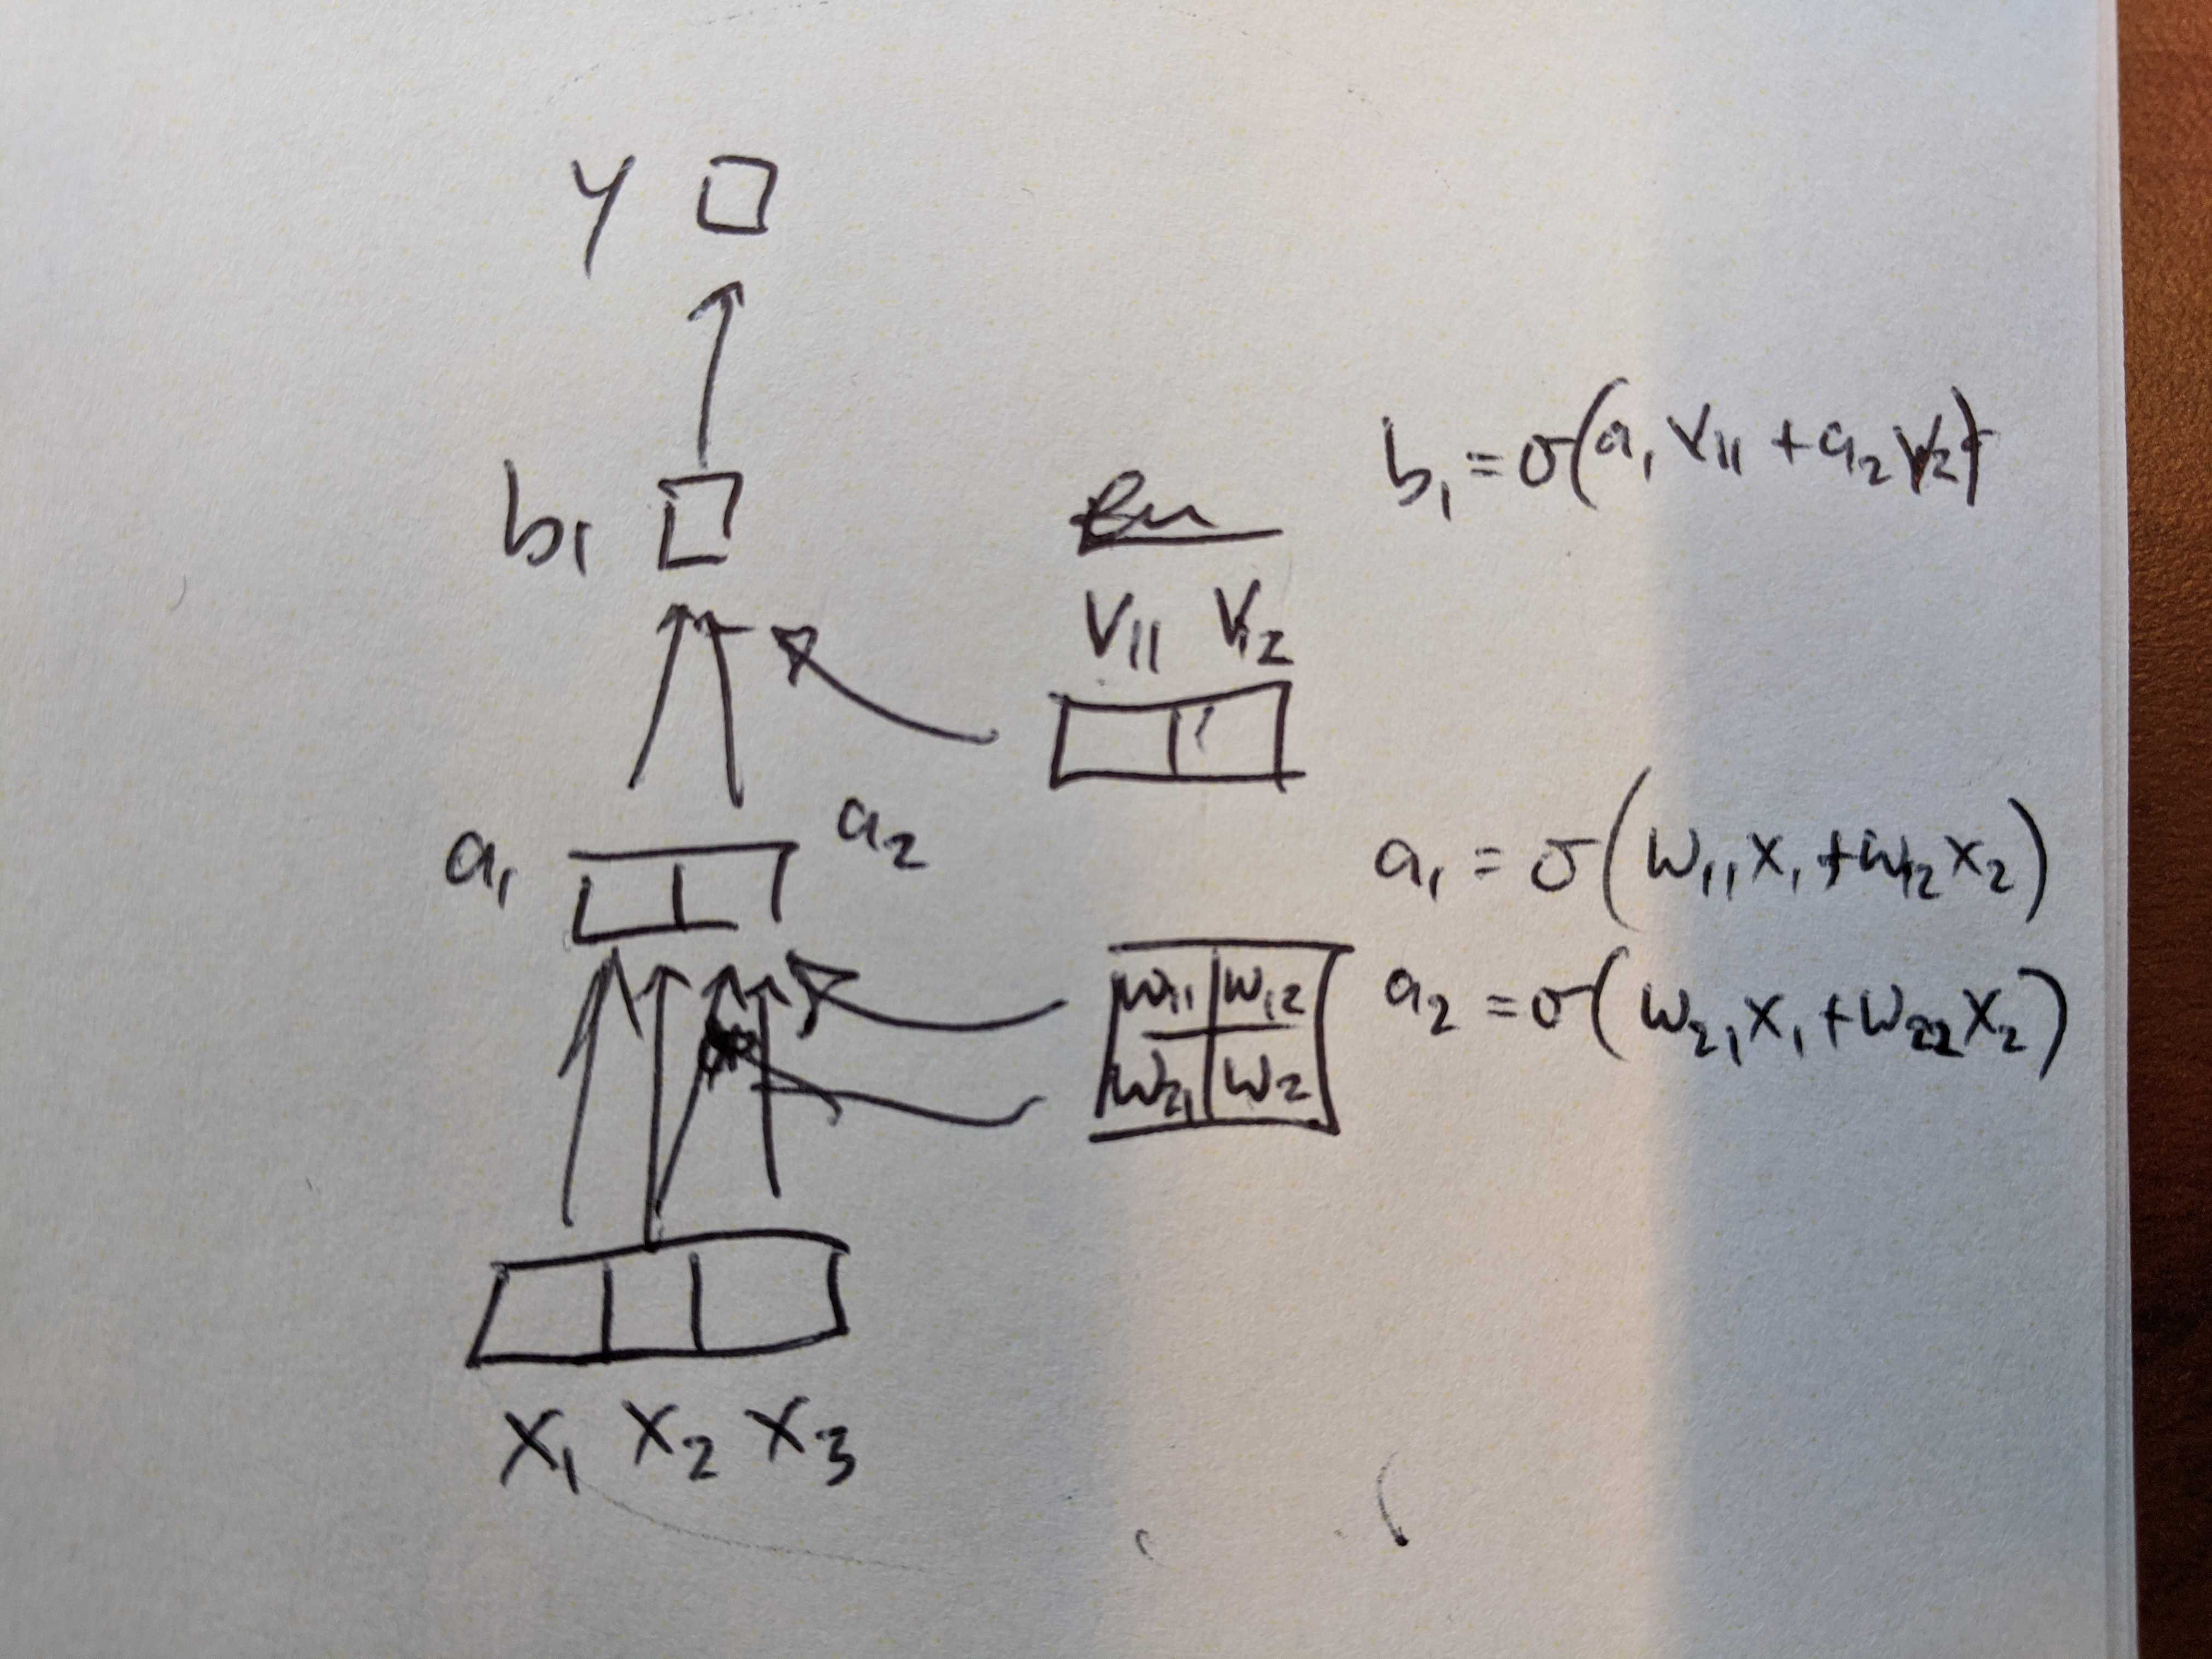 y
b₁ = σ(a₁ v₁₁ + a₂ v₁₂)
b₁
v₁₁ v₁₂
a₁ a₂
a₁ = σ(w₁₁x₁ + w₁₂x₂)
w₁₁ w₁₂
a₂ = σ(w₂₁x₁ + w₂₂x₂)
w₂₁ w₂
x₁ x₂ x₃